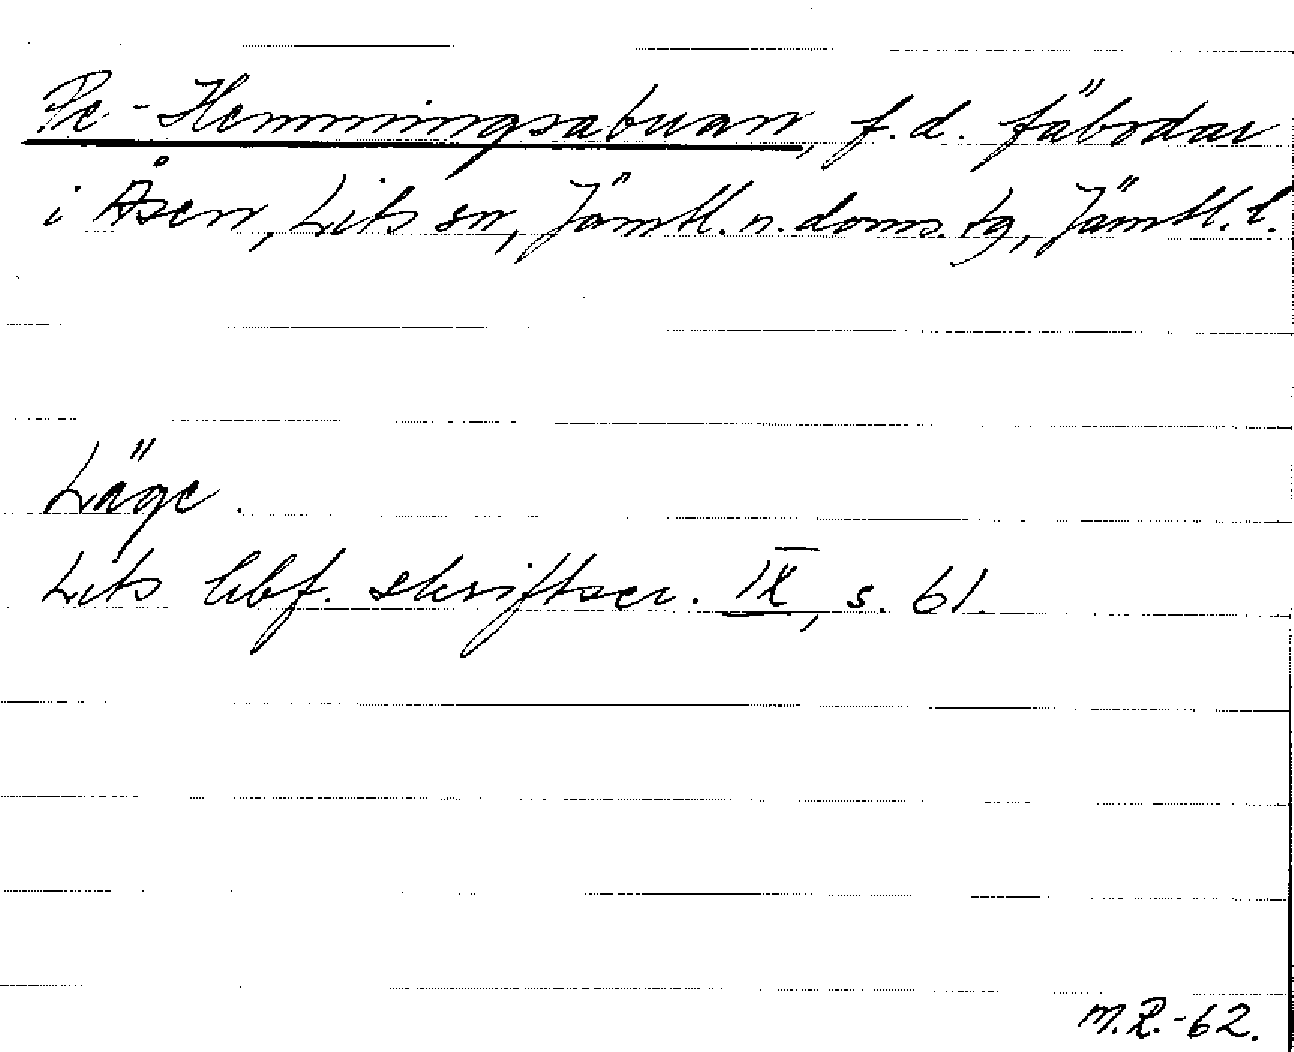 Pe-Hemmingsabuan, f.d. fäbodar
i Åsen, Lits sn, Jämtl. n. doms. tg, Jämtl. l.
Läge.
Lits hbf. skriftser. IX, s. 61.
M.R.-62.